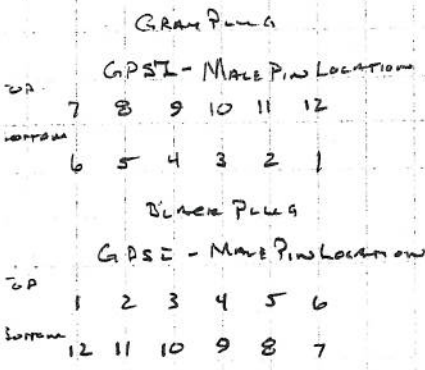 GRAY PLUG
GPSI - MALE PIN LOCATION
TOP
7 8 9 10 11 12
BOTTOM
6 5 4 3 2 1
BLACK PLUG
GPSI - MALE PIN LOCATION
TOP
1 2 3 4 5 6
BOTTOM
12 11 10 9 8 7